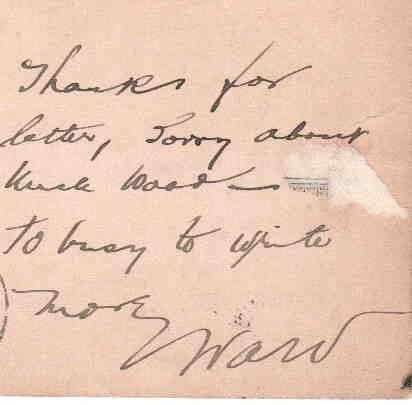 Thanks for
letter, Sorry about
Wood —
to busy to write
more
Ward